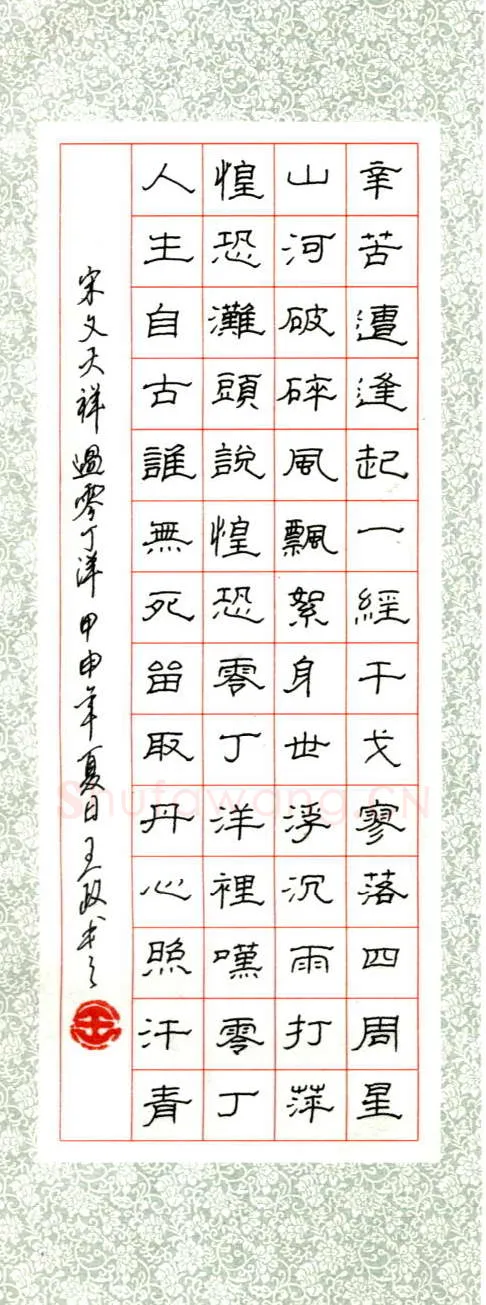 辛苦遭逢起一經干戈寥落四周星
山河破碎風飄絮身世浮沉雨打萍
惶恐灘頭說惶恐零丁洋裡嘆零丁
人生自古誰無死留取丹心照汗青
宋文天祥過零丁洋甲申年夏日王政書之
王
Shufawang.CN